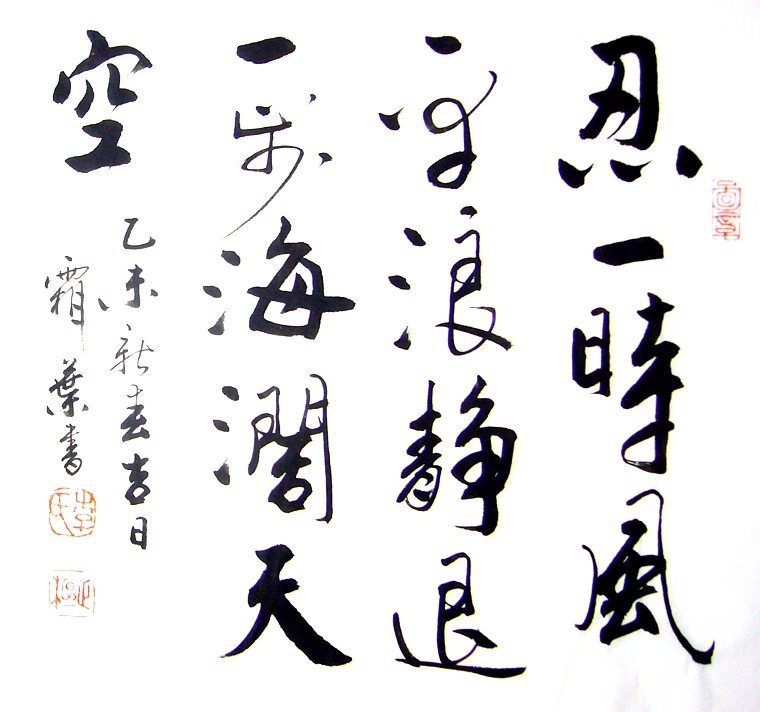 忍一時風
平浪靜退
一步海濶天
空
乙未新春吉日
霜葉書